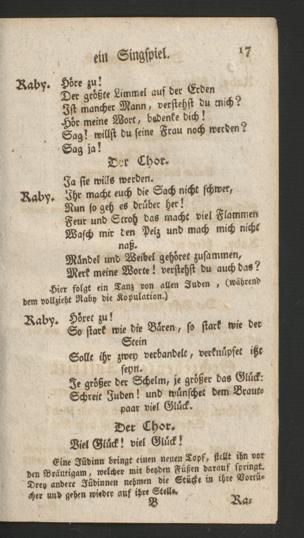 ein Singspiel. 17
Raby. Höre zu!
Der größte Limmel auf der Erden
Ist mancher Mann, verstehst du mich?
Hör meine Wort, bedenke dich!
Sag! willst du seine Frau noch werden?
Sag ja!
Der Chor.
Ja sie wills werden.
Raby. Ihr macht euch die Sach nicht schwer,
Nun so geh es drüber her!
Feur und Stroh das macht viel Flammen
Wasch mir den Pelz und mach mich nicht
naß.
Mändel und Weibel gehöret zusammen,
Merk meine Worte! verstehst du auch das?
(Hier folgt ein Tanz von allen Juden, (während
dem vollzieht Raby die Kopulation.)
Raby. Höret zu!
So stark wie die Bären, so stark wie der
Stein
Solle ihr zwey verbandelt, verknüpfet itzt
seyn.
Je größer der Schelm, je größer das Glück:
Schreit Juden! und wünschet dem Braut-
paar viel Glück.
Der Chor.
Viel Glück! viel Glück!
Eine Jüdinn bringt einen neuen Topf, stellt ihn vor
den Bräutigam, welcher mit beyden Füßen darauf springt.
Drey andere Jüdinnen nehmen die Stücke in ihre Vortü-
cher und gehen wieder auf ihre Stelle.
B Ra-